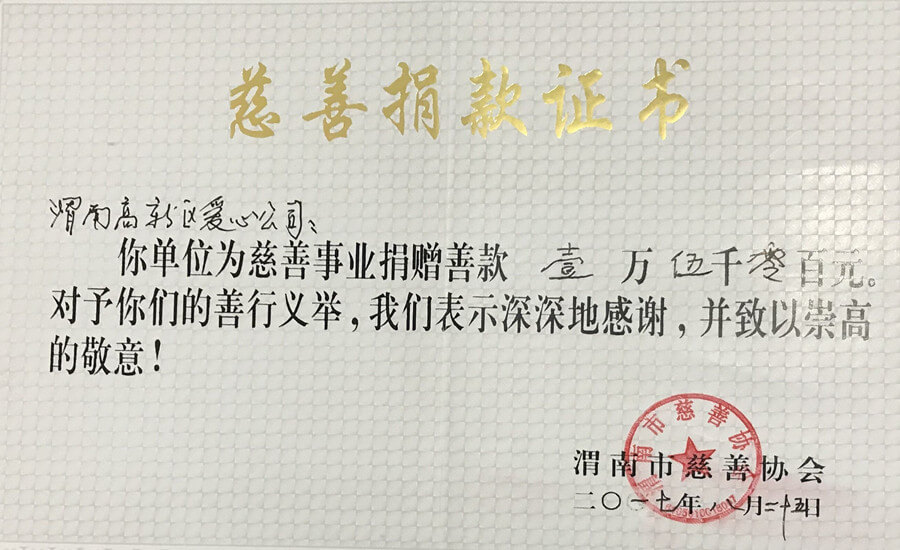 慈善捐款证书
渭南高新区爱心公司：
你单位为慈善事业捐赠善款 壹 万 伍 千 零 百元。
对予你们的善行义举，我们表示深深地感谢，并致以崇高
的敬意！
渭南市慈善协会
渭南市慈善协会
二〇一七年八月二十五日